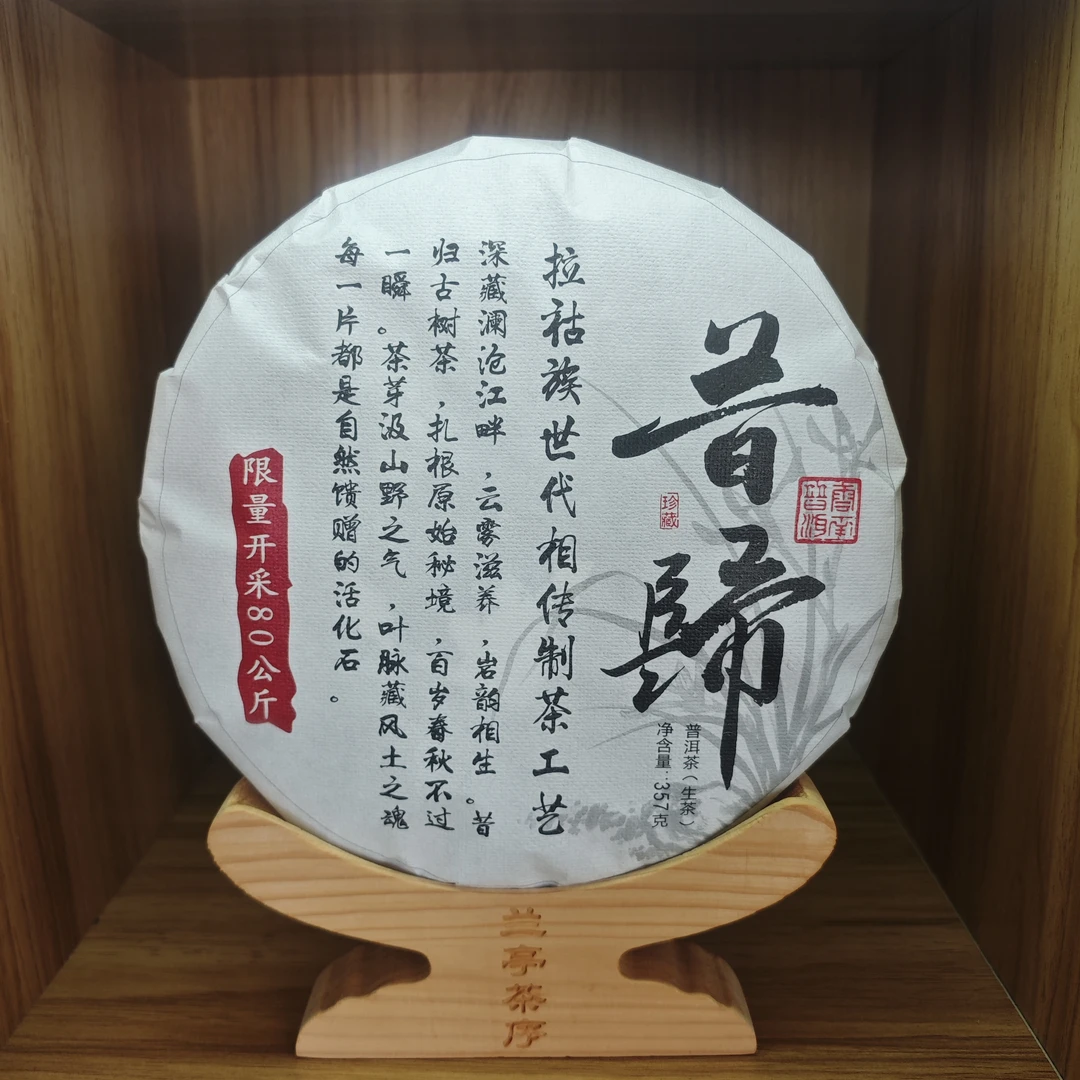 昔歸
雲南
普洱
珍藏
普洱茶（生茶）
净含量：357克
拉祜族世代相传制茶工艺
深藏澜沧江畔，云雾滋养，岩韵相生。昔
归古树茶，扎根原始秘境，百岁春秋不过
一瞬。茶芽汲山野之气，叶脉藏风土之魂
每一片都是自然馈赠的活化石。
限量开采80公斤
兰亭茶序